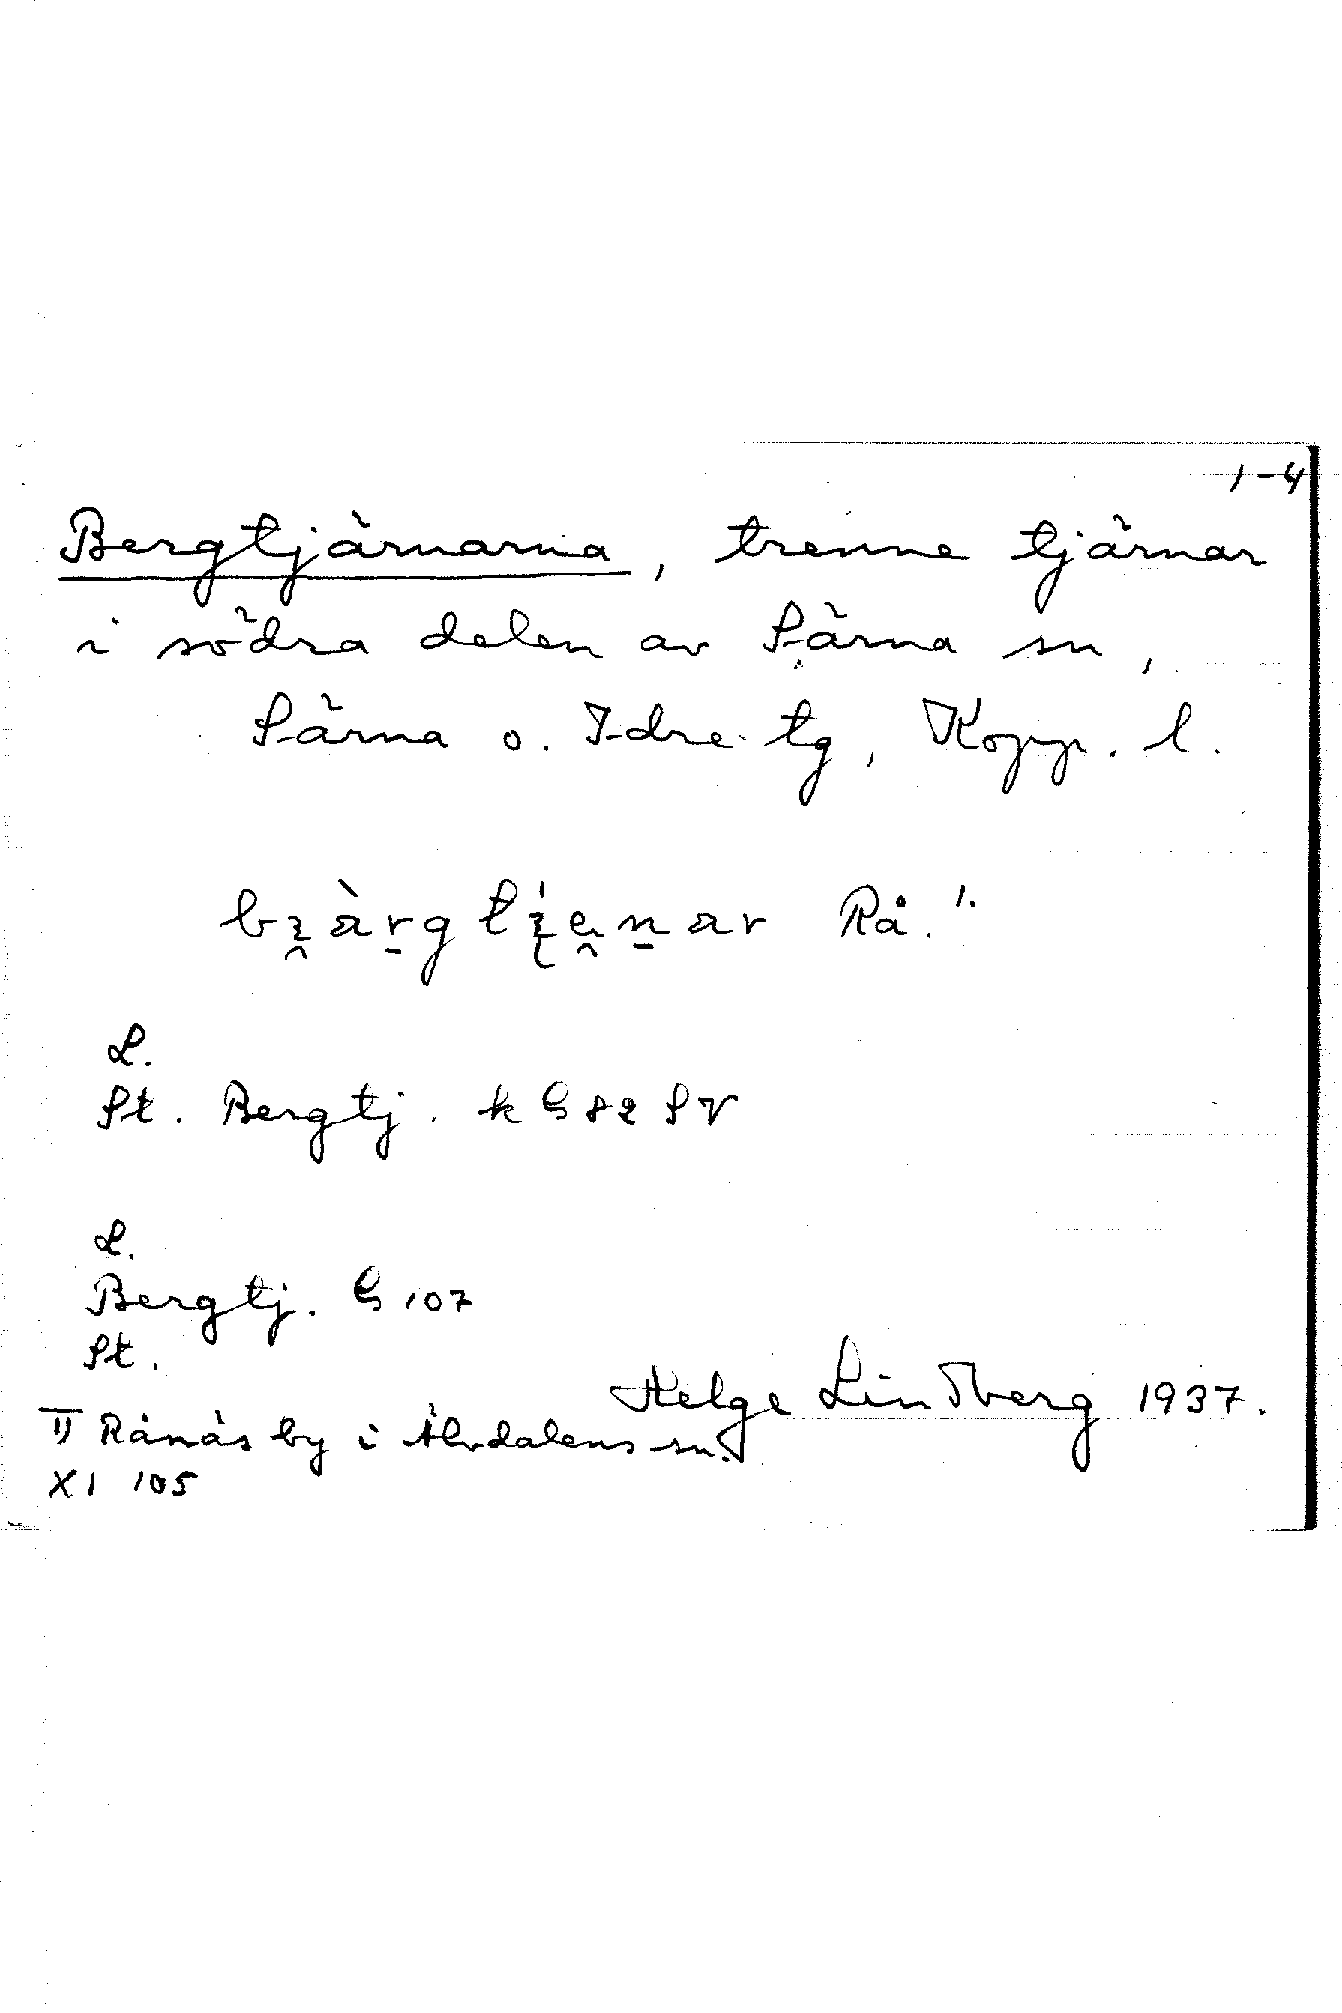 1-4
Bergtjärnarna, trenne tjärnar
i södra delen av Särna sn,
Särna o. Idre tg, Kopp. l.
Rå. 1.
L.
St. Bergtj. k G 82 SV
L.
Bergtj. G 107
St.
Helge Lindberg 1937.
1) Rånäs by i Älvdalens sn.
XI 105